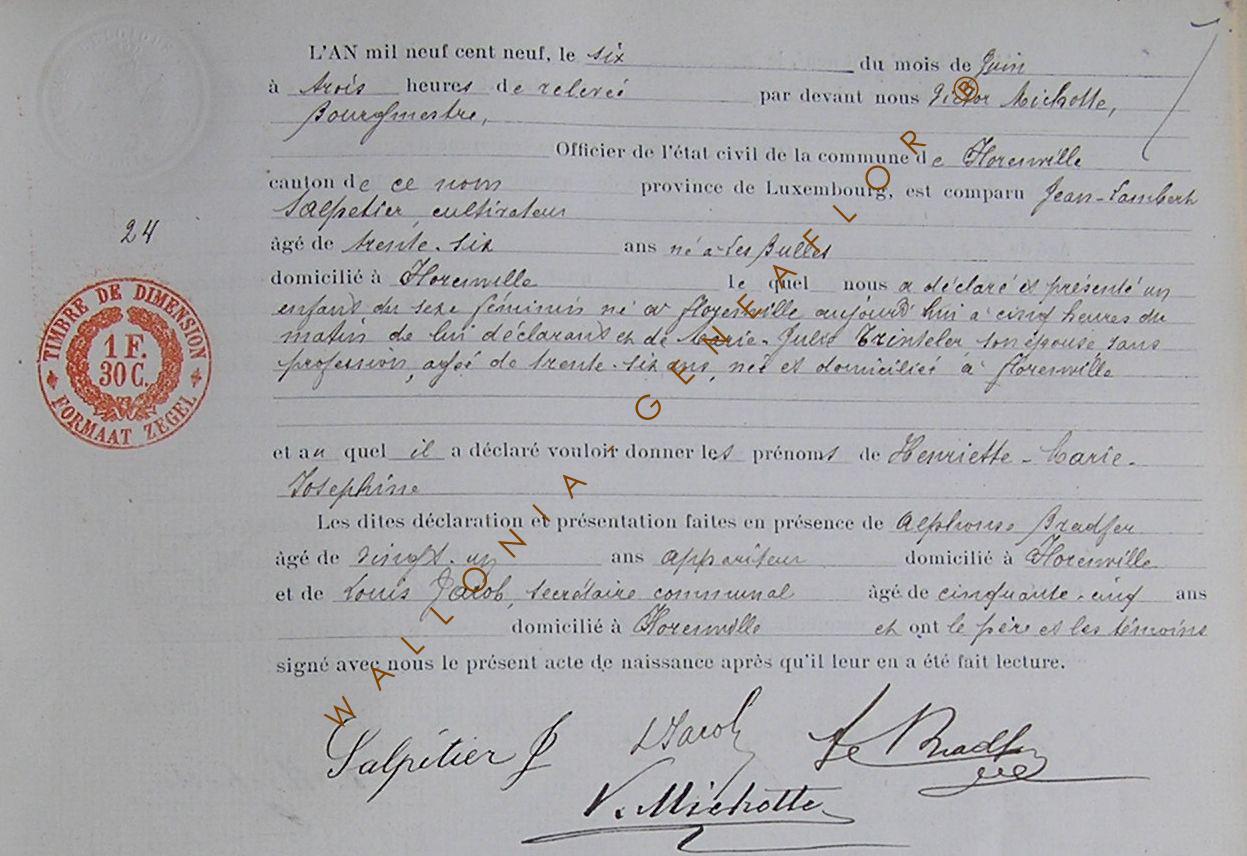 L'AN mil neuf cent neuf, le six du mois de Juin
à trois heures de relevée par devant nous Victor Michotte,
Bourgmestre,
Officier de l'état civil de la commune de Florenville
canton de ce nom province de Luxembourg, est comparu Jean-Lambert
Salpetier cultivateur
24
âgé de trente-six ans né à Les Bulles
domicilié à Florenville le quel nous a déclaré et présenté un
enfant du sexe féminin né à Florenville aujourd'hui à cinq heures du
matin de lui déclarant et de Marie-Julie Trinteler son épouse sans
profession, agée de trente-six ans, née et domiciliée à Florenville
TIMBRE DE DIMENSION
1 F.
30 C.
FORMAAT ZEGEL
et au quel il a déclaré vouloir donner les prénoms de Henriette-Marie-
Josephine
Les dites déclaration et présentation faites en présence de Alphonse Bradfer
âgé de vingt-un ans appariteur domicilié à Florenville
et de Louis Jacob, secrétaire communal âgé de cinquante-cinq ans
domicilié à Florenville et ont le père et les témoins
signé avec nous le présent acte de naissance après qu'il leur en a été fait lecture.
Salpétier J L Jacob Bradfer
V. Michotte
WALLONIA - GENEAFLOR ®